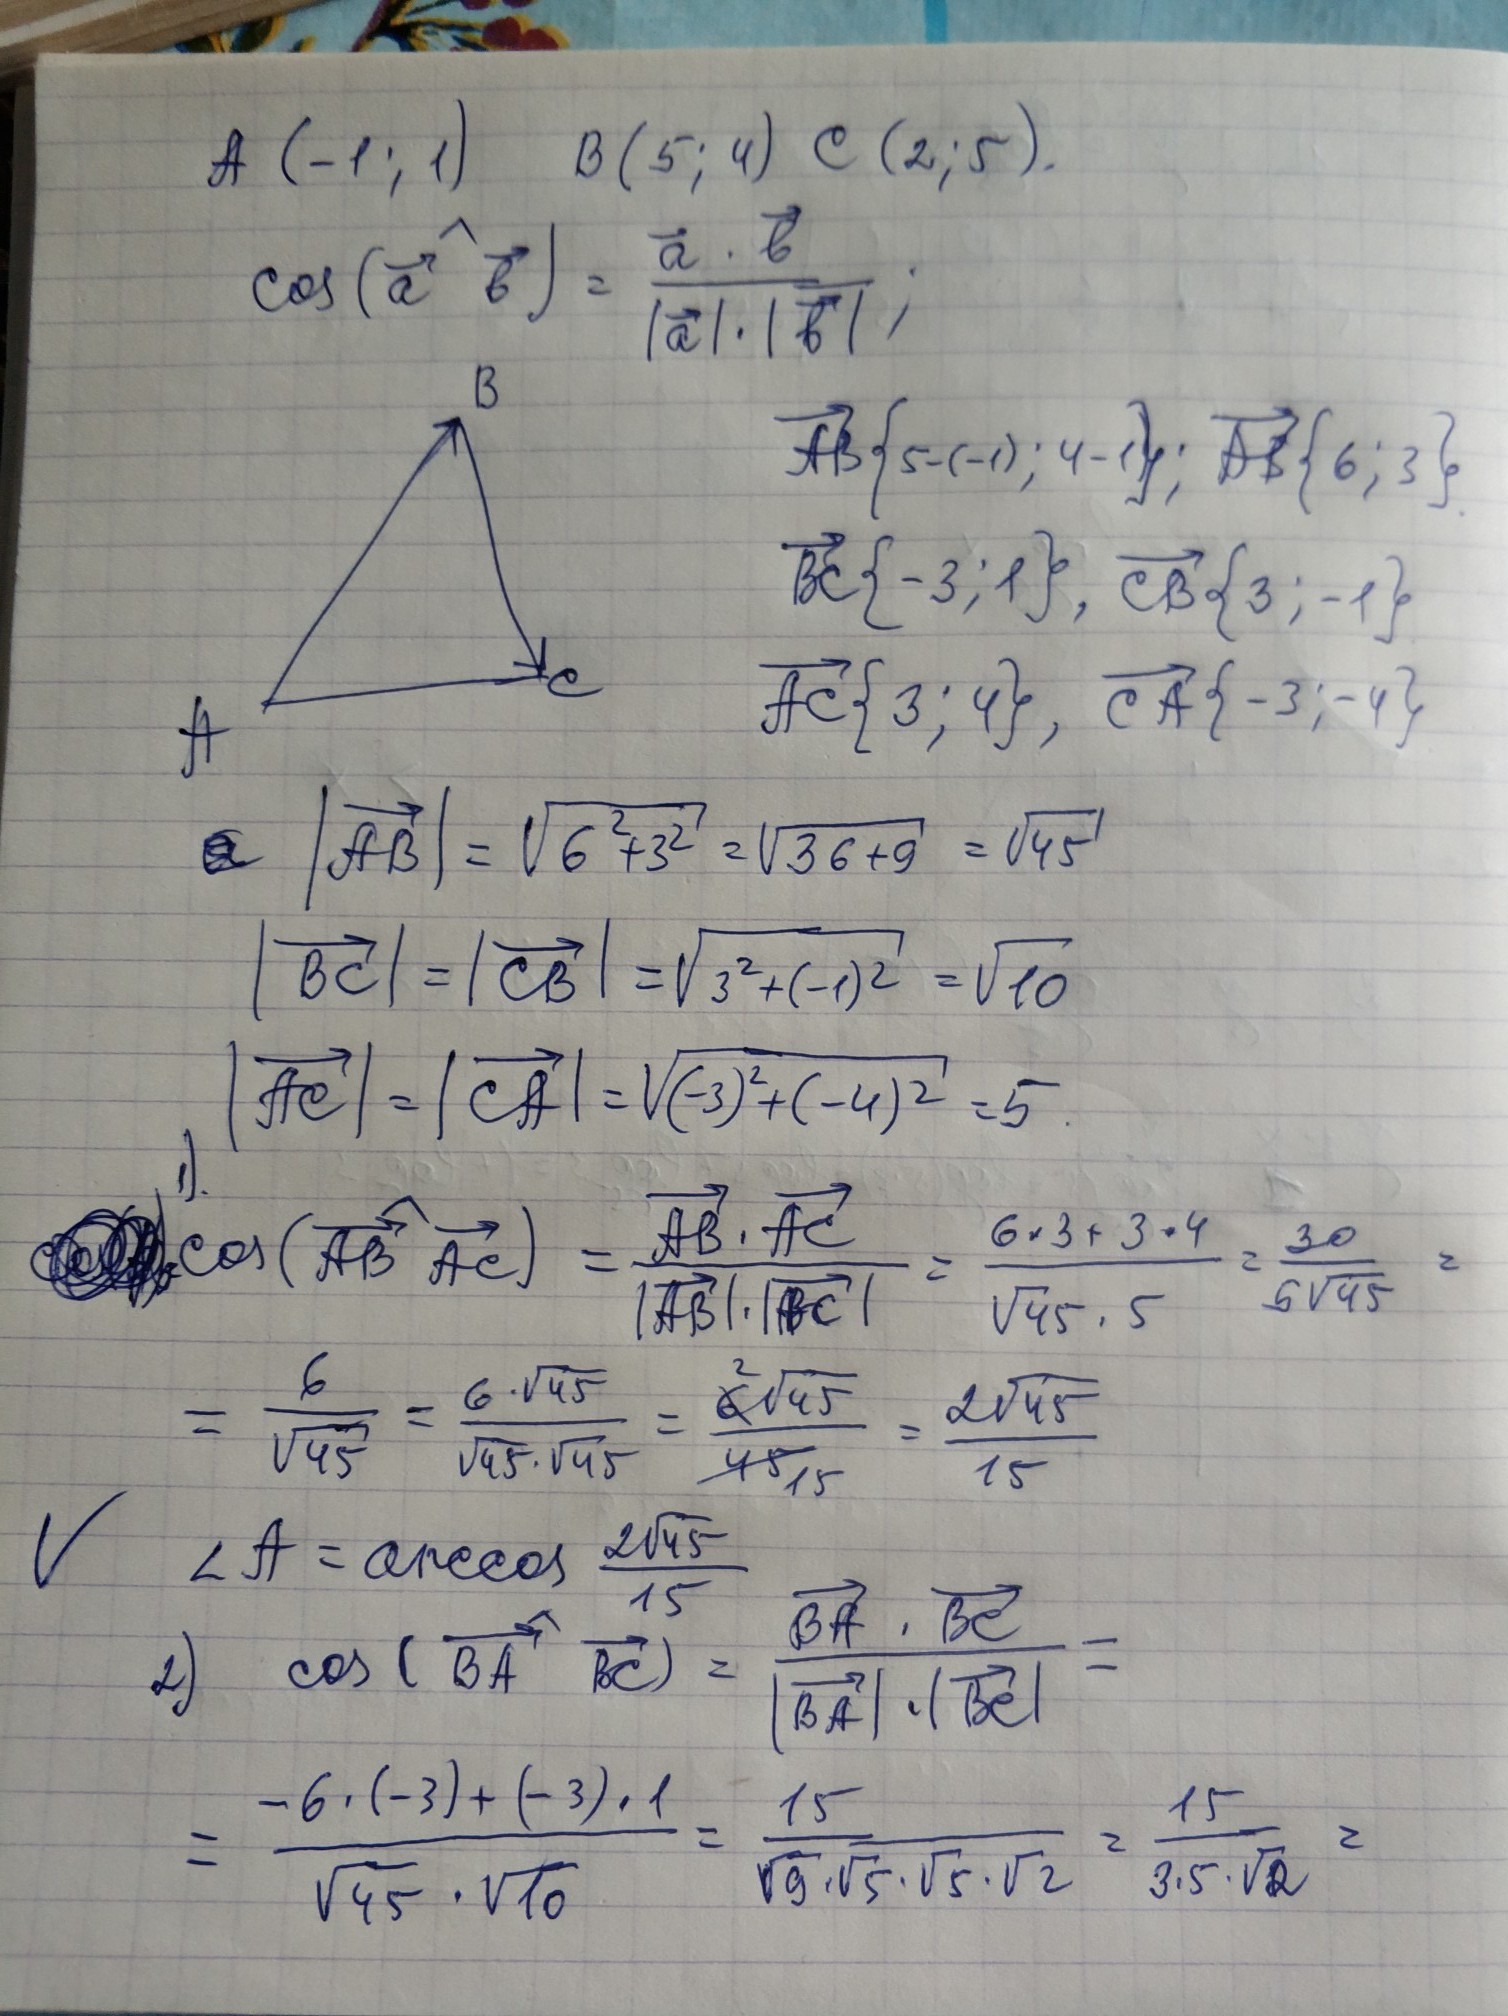 A (-1; 1) B(5; 4) C (2; 5).
cos(a⃗ ^ b⃗) = a⃗ · b⃗ / |a⃗| · |b⃗| ;
B
A
C
AB⃗{5-(-1); 4-1}; AB⃗{6; 3}.
BC⃗{-3; 1}, CB⃗{3; -1}
AC⃗{3; 4}, CA⃗{-3; -4}
|AB⃗| = √(6²+3²) = √(36+9) = √45
|BC⃗| = |CB⃗| = √(3²+(-1)²) = √10
|AC⃗| = |CA⃗| = √((-3)²+(-4)²) = 5.
1). cos(AB⃗ ^ AC⃗) = AB⃗ · AC⃗ / |AB⃗| · |BC⃗| = 6·3+3·4 / √45 · 5 = 30 / 5√45 =
= 6 / √45 = 6·√45 / √45·√45 = 6 2 √45 / 45 15 = 2√45 / 15
V ∠A = arccos 2√45 / 15
2) cos(BA⃗ ^ BC⃗) = BA⃗ · BC⃗ / |BA⃗| · |BC⃗| =
= -6·(-3)+(-3)·1 / √45 · √10 = 15 / √9·√5·√5·√2 = 15 / 3·5·√2 =